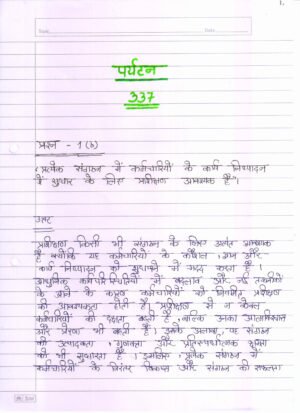 1.
Topic
Date
पर्यटन
337
प्रश्न - 1 (b)
"प्रत्येक संगठन में कर्मचारियों के कार्य निष्पादन
में सुधार के लिए प्रशिक्षण आवश्यक है"।
उत्तर
प्रशिक्षण किसी भी संगठन के लिए अत्यंत आवश्यक
है क्योंकि यह कर्मचारियों के कौशल, ज्ञान और
कार्य निष्पादन को सुधारने में मदद करता है।
आधुनिक कार्य परिस्थितियों में बदलाव और नई तकनीकों
के आने के कारण कर्मचारियों को नियमित प्रशिक्षण
की आवश्यकता होती है। प्रशिक्षण से न केवल
कर्मचारियों की दक्षता बढ़ती है, बल्कि उनका आत्मविश्वास
और प्रेरणा भी बढ़ती है। इसके अलावा, यह संगठन
की उत्पादकता, गुणवत्ता और प्रतिस्पर्धात्मक क्षमता
को भी सुधारता है। इसलिए, प्रत्येक संगठन में
कर्मचारियों के निरंतर विकास और संगठन की सफलता